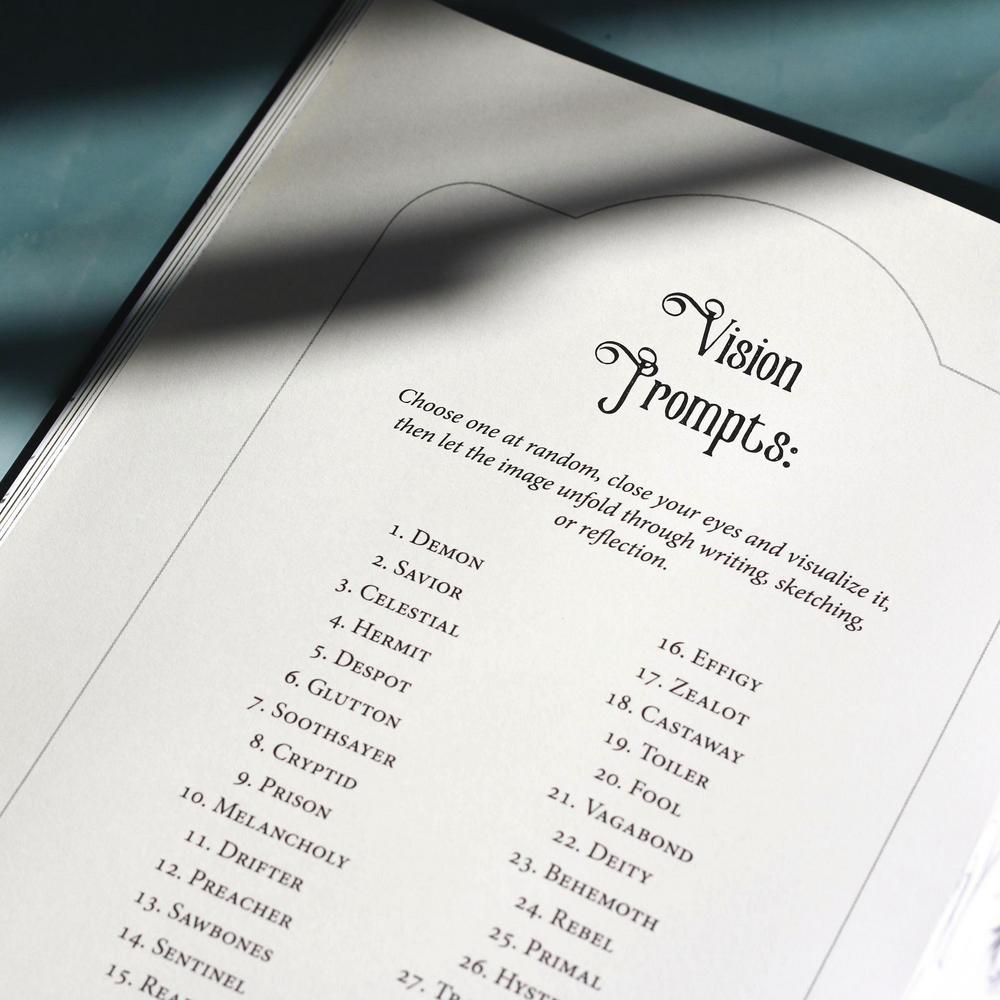 Vision
Prompts:
Choose one at random, close your eyes and visualize it,
then let the image unfold through writing, sketching,
or reflection.
1. Demon
2. Savior
3. Celestial
4. Hermit
5. Despot
6. Glutton
7. Soothsayer
8. Cryptid
9. Prison
10. Melancholy
11. Drifter
12. Preacher
13. Sawbones
14. Sentinel
15.
16. Effigy
17. Zealot
18. Castaway
19. Toiler
20. Fool
21. Vagabond
22. Deity
23. Behemoth
24. Rebel
25. Primal
26.
27.